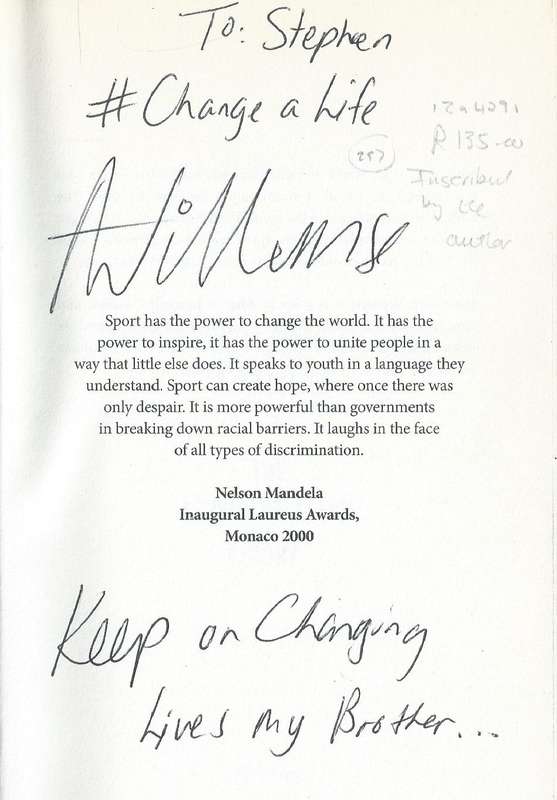 To: Stephen
# Change a Life
R 135-00
257
Inscribed
by the
author
AWillemse
Sport has the power to change the world. It has the
power to inspire, it has the power to unite people in a
way that little else does. It speaks to youth in a language they
understand. Sport can create hope, where once there was
only despair. It is more powerful than governments
in breaking down racial barriers. It laughs in the face
of all types of discrimination.
Nelson Mandela
Inaugural Laureus Awards,
Monaco 2000
Keep on Changing
Lives my Brother...